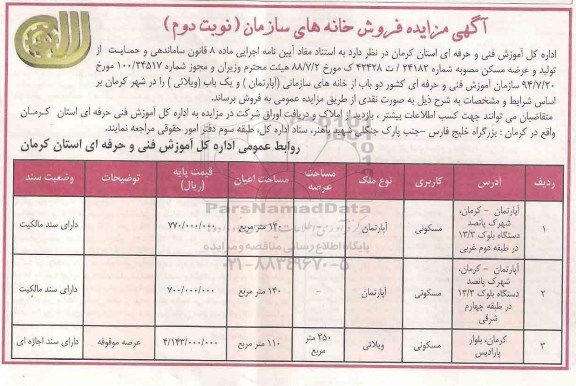 آگهی مزایده فروش خانه های سازمان (نوبت دوم)
اداره کل آموزش فنی و حرفه ای استان کرمان در نظر دارد به استناد مفاد آیین نامه اجرایی ماده ۸ قانون ساماندهی و حمایت از
تولید و عرضه مسکن مصوبه شماره ۲۴۱۸۲ / ت ۴۲۴۲۸ ک مورخ ۸۸/۷/۲ هیئت محترم وزیران و مجوز شماره ۱۰۰/۲۴۵۱۷ مورخ
۹۴/۷/۲۰ سازمان آموزش فنی و حرفه ای کشور دو باب از خانه های سازمانی (آپارتمان) و یک باب (ویلائی) را در شهر کرمان بر
اساس شرایط و مشخصات به شرح ذیل به صورت نقدی از طریق مزایده عمومی به فروش برساند.
متقاضیان می توانند جهت کسب اطلاعات بیشتر، بازدید از املاک و دریافت اوراق شرکت در مزایده به اداره کل آموزش فنی حرفه ای استان کرمان
واقع در کرمان : بزرگراه خلیج فارس -جنب پارک جنگلی شهید باهنر، ستاد اداره کل، طبقه سوم دفتر امور حقوقی مراجعه نمایند.
روابط عمومی اداره کل آموزش فنی و حرفه ای استان کرمان
ردیف آدرس کاربری نوع ملک مساحت عرصه مساحت اعیان قیمت پایه (ریال) توضیحات وضعیت سند
۱ آپارتمان - کرمان، شهرک پانصد دستگاه بلوک ۱۳/۳ در طبقه دوم غربی مسکونی آپارتمان - ۱۴۰ متر مربع ۷۷۰/۰۰۰/۰۰۰ دارای سند مالکیت
۲ آپارتمان - کرمان، شهرک پانصد دستگاه بلوک ۱۳/۳ در طبقه چهارم شرقی مسکونی آپارتمان - ۱۴۰ متر مربع ۷۰۰/۰۰۰/۰۰۰ دارای سند مالکیت
۳ کرمان، بلوار پارادیس مسکونی ویلائی ۲۵۰ متر مربع ۱۱۰ متر مربع ۴/۱۴۳/۰۰۰/۰۰۰ عرصه موقوفه دارای سند اجاره ای
ParsNamadData
پایگاه اطلاع رسانی مناقصه و مزایده
۰۲۱-۸۸۳۴۹۶۷۰-۵